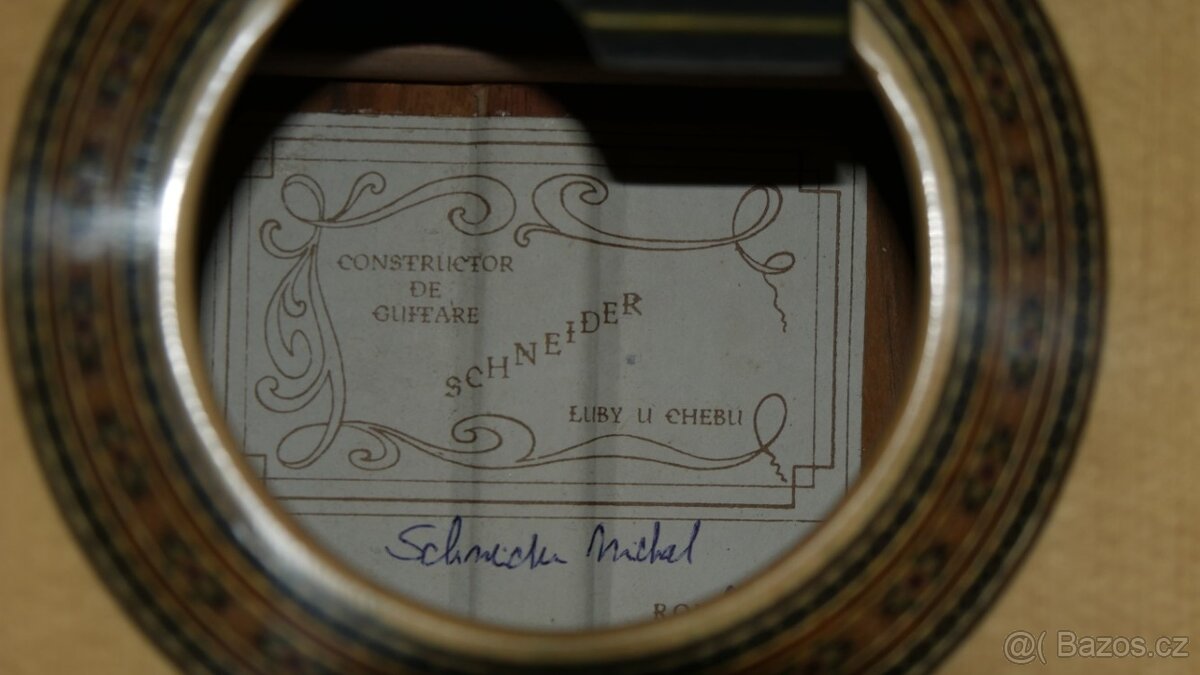 CONSTRUCTOR
DE
GUITARE
SCHNEIDER
LUBY U CHEBU
Schneider Michal
@( Bazos.cz